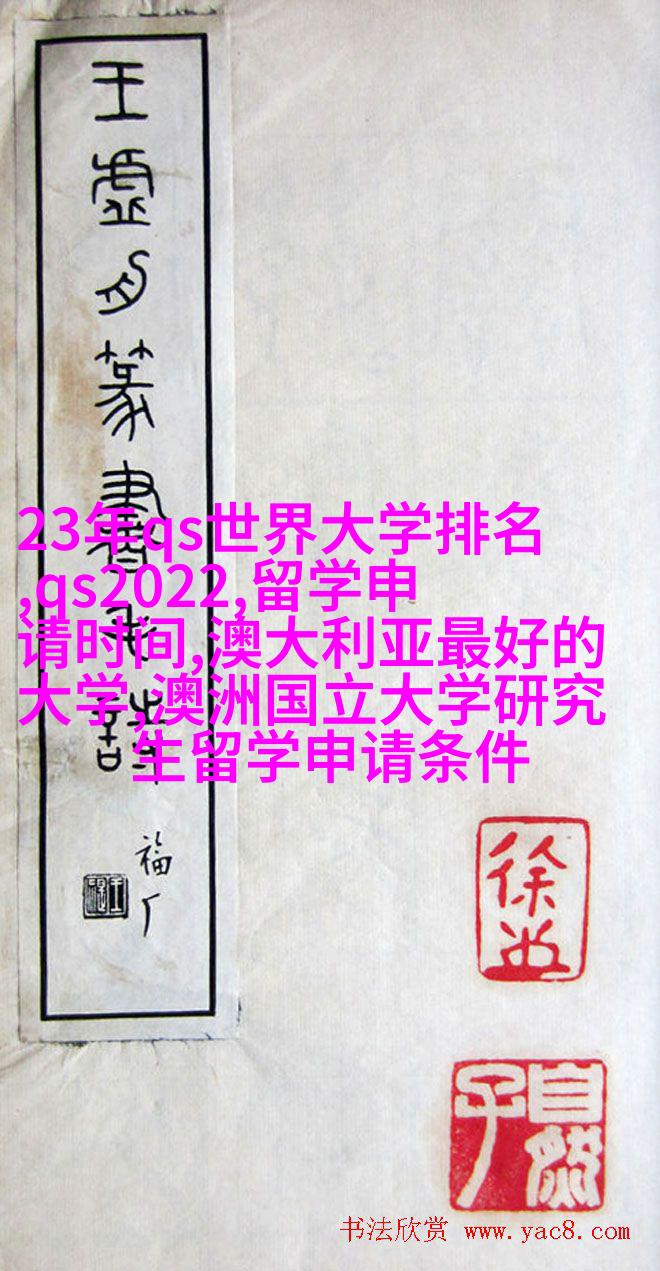 王虛舟篆書
福厂
23年qs世界大学排名
,qs2022,留学申
请时间,澳大利亚最好的
大学,澳洲国立大学研究
生留学申请条件
自然子
书法欣赏 www.yac8.com